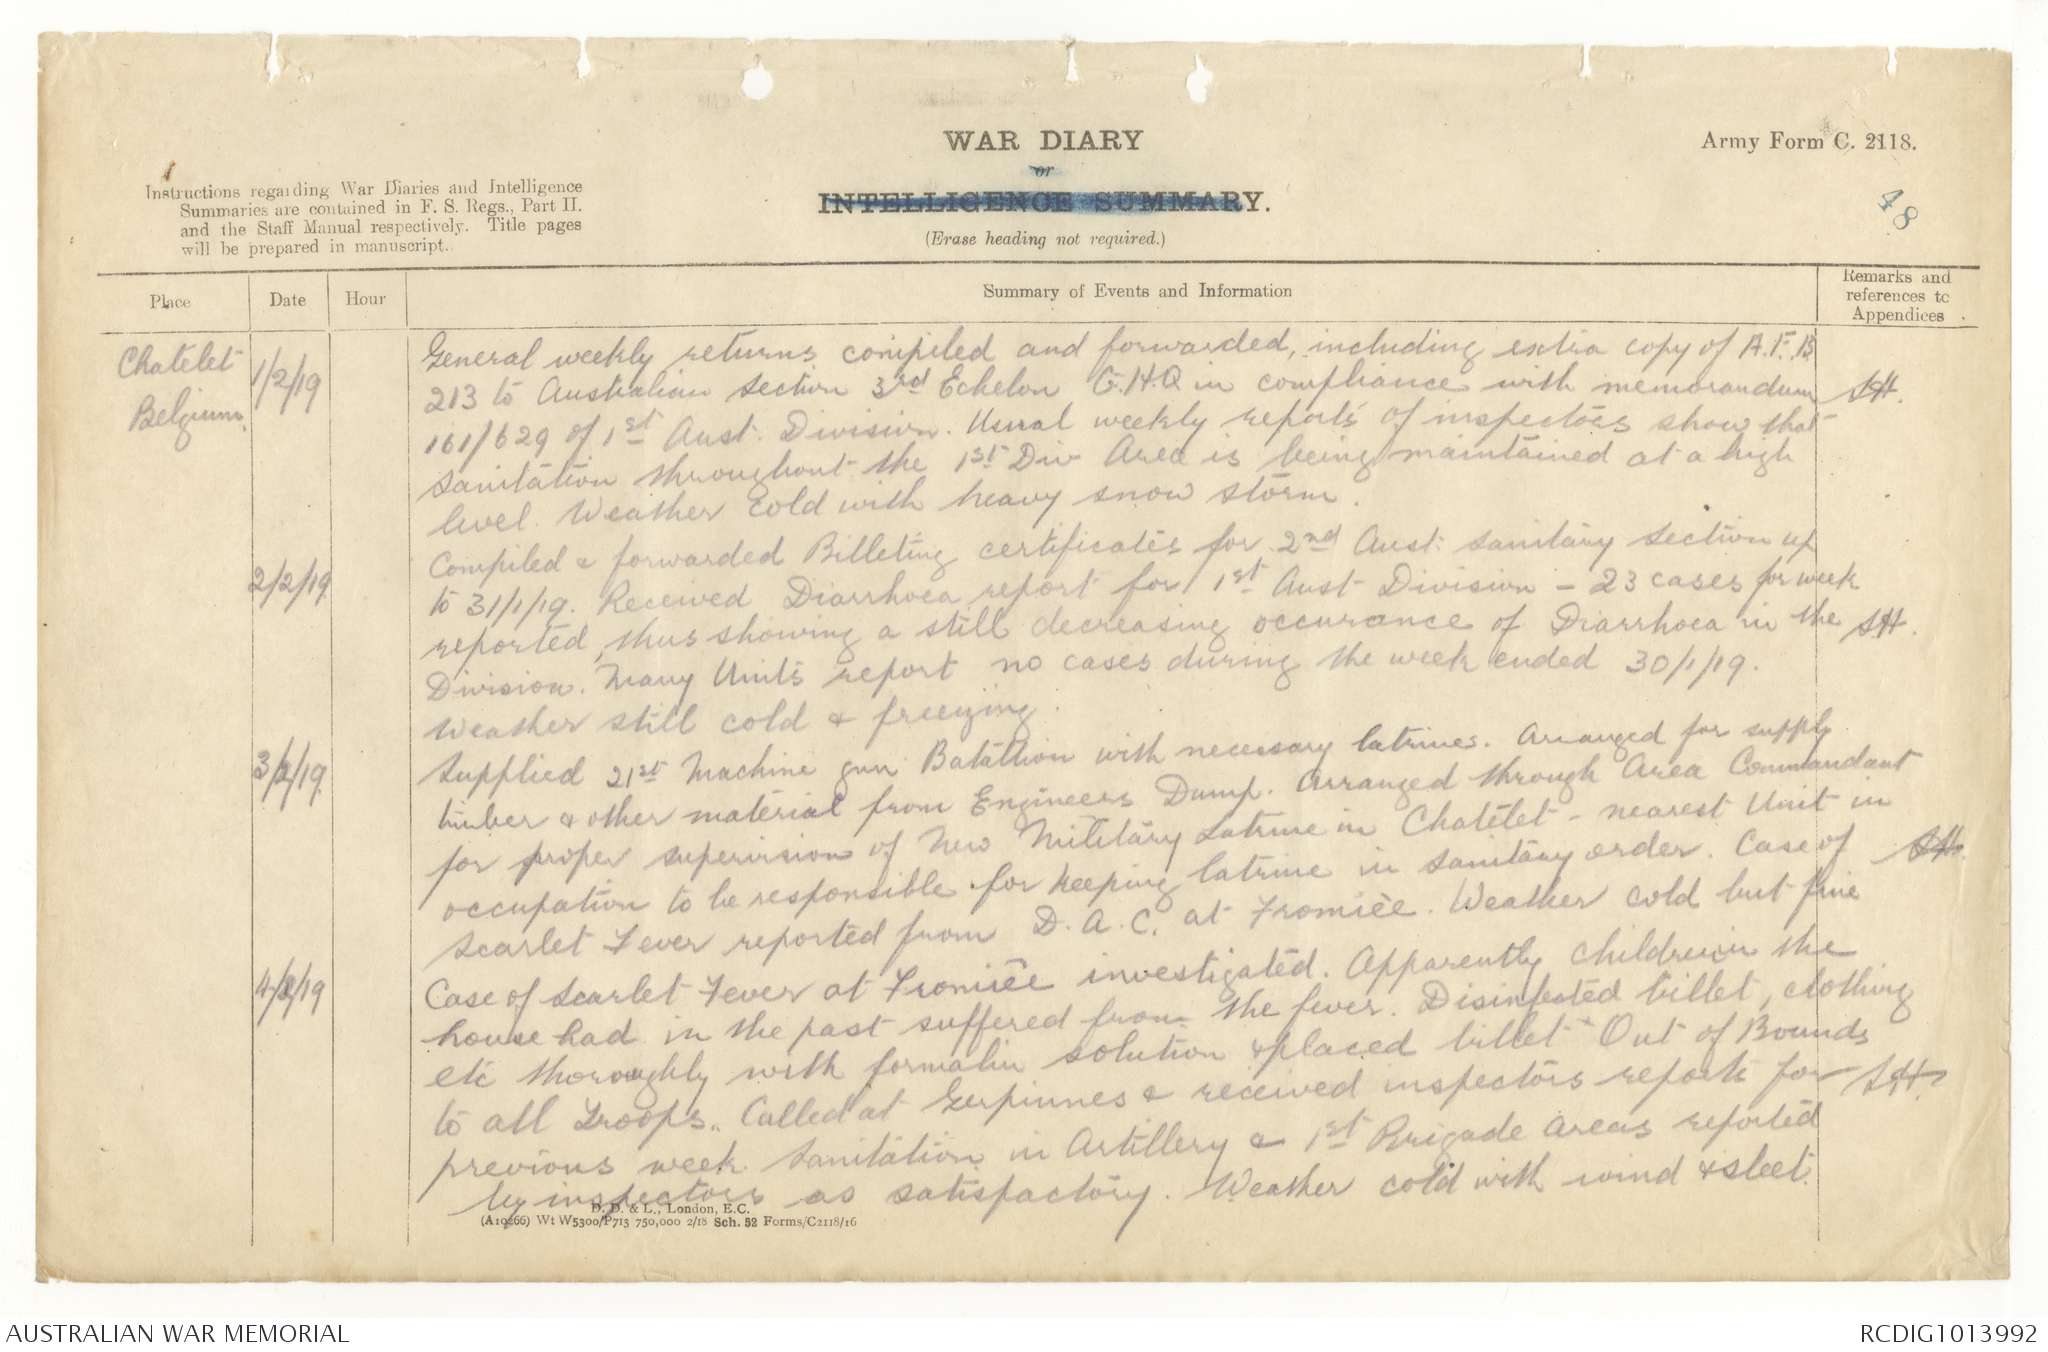 WAR DIARY
or
INTELLIGENCE SUMMARY.
(Erase heading not required.)
Army Form C. 2118.
48
Instructions regarding War Diaries and Intelligence
Summaries are contained in F. S. Regs., Part II.
and the Staff Manual respectively. Title pages
will be prepared in manuscript.
Place Date Hour Summary of Events and Information Remarks and references to Appendices
Chatelet
Belgium.
1/2/19
General weekly returns compiled and forwarded, including extra copy of A.F.B
213 to Australian Section 3rd Echelon G.H.Q in compliance with memorandum
161/629 of 1st Aust. Division. Usual weekly reports of inspectors show that
sanitation throughout the 1st Div Area is being maintained at a high
level. Weather cold with heavy snow storm.
2/2/19
Compiled & forwarded Billeting certificates for 2nd Aust. Sanitary Section up
to 31/1/19. Received Diarrhoea report for 1st Aust Division - 23 cases for week
reported, thus showing a still decreasing occurance of Diarrhoea in the
Division. Many Units report no cases during the week ended 30/1/19.
Weather still cold & freezing.
3/2/19
Supplied 21st Machine gun Batathion with necessary latrines. Arranged for supply
timber & other material from Engineers Dump. Arranged through Area Commandant
for proper supervision of New Military Latrine in Chatelet - nearest Unit in
occupation to be responsible for keeping latrine in sanitary order. Case of
Scarlet Fever reported from D.A.C. at Fromiée. Weather cold but fine
4/2/19
Case of Scarlet Fever at Fromiée investigated. Apparently children in the
house had in the past suffered from the fever. Disinfected billet, clothing
etc thoroughly with formalin solution & placed billet Out of Bounds
to all Troops. Called at Gerpinnes & received inspectors reports for
previous week. Sanitation in Artillery & 1st Brigade Areas reported
by inspectors as satisfactory. Weather cold with wind & sleet.
SH.
SH.
SH.
SH.
D. D. & L., London, E.C.
(A10266) Wt W5300/P713 750,000 2/18 Sch. 52 Forms/C2118/16
AUSTRALIAN WAR MEMORIAL
RCDIG1013992